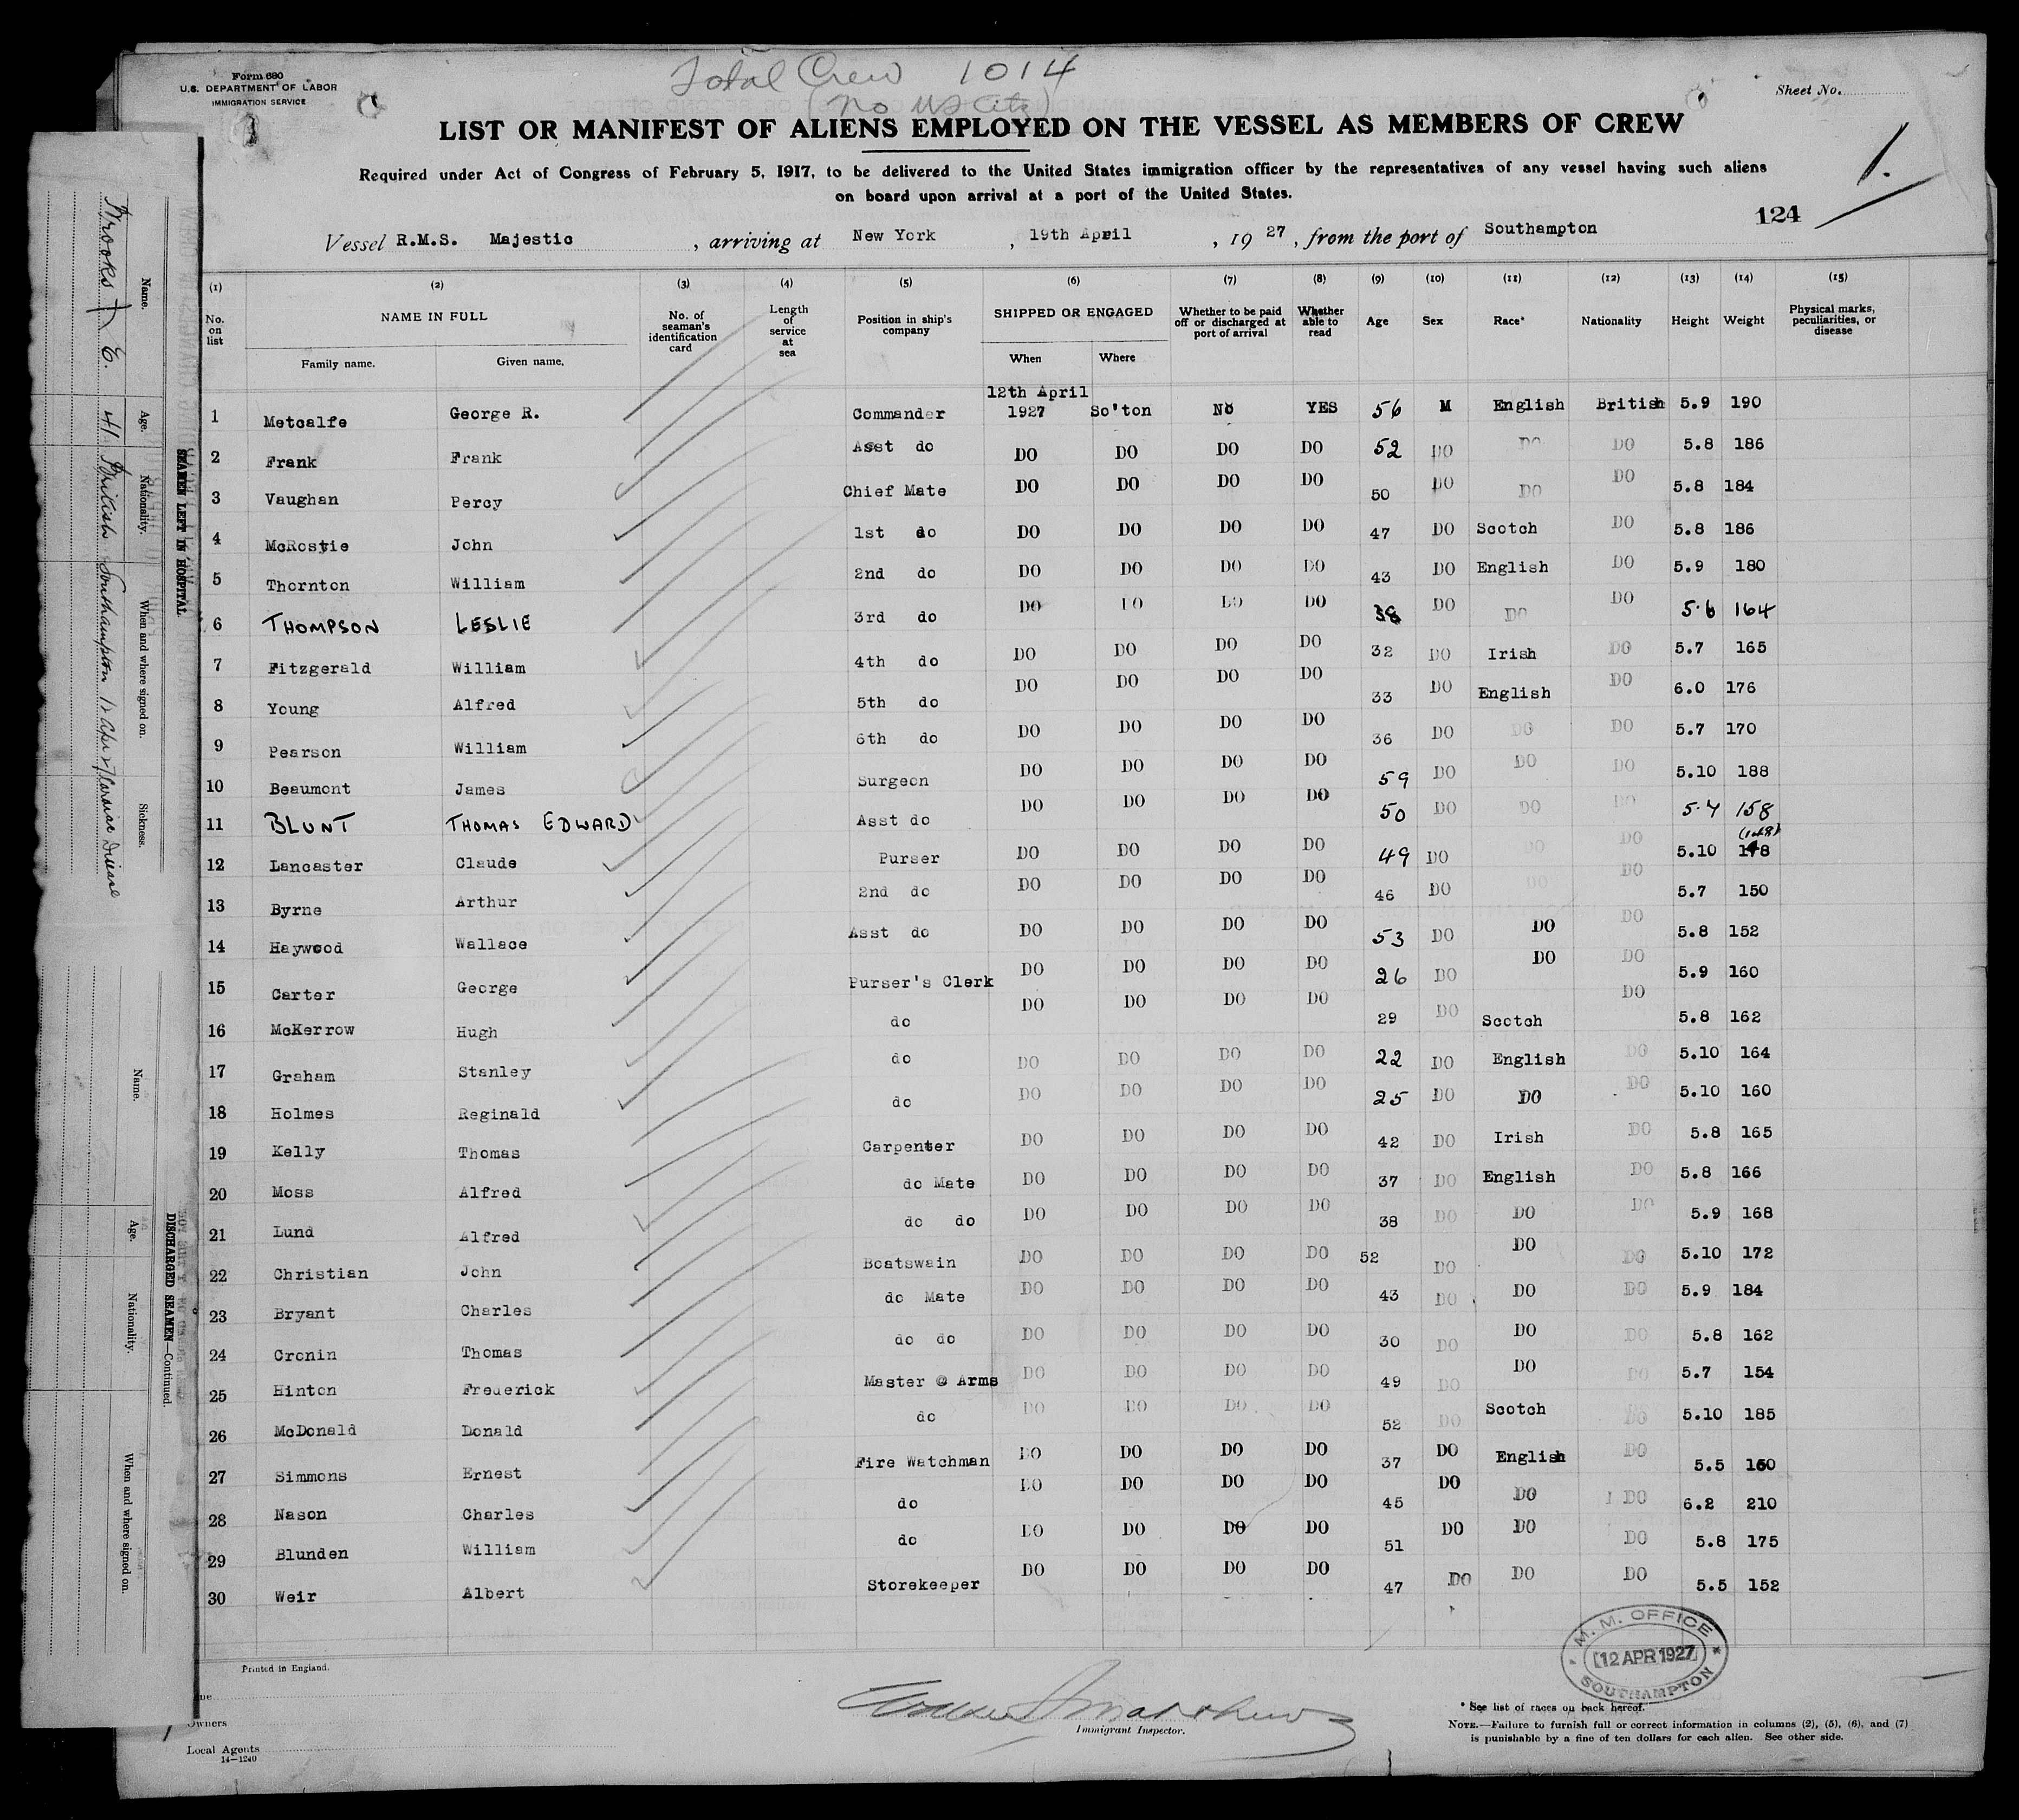 Total Crew 1014
(No US Cits)
Form 680
U.S. DEPARTMENT OF LABOR
IMMIGRATION SERVICE
Sheet No.
LIST OR MANIFEST OF ALIENS EMPLOYED ON THE VESSEL AS MEMBERS OF CREW
Required under Act of Congress of February 5, 1917, to be delivered to the United States immigration officer by the representatives of any vessel having such aliens
on board upon arrival at a port of the United States.
1.
124
Vessel R.M.S. Majestic , arriving at New York , 19th April , 19 27 , from the port of Southampton
(1) (2) (3) (4) (5) (6) (7) (8) (9) (10) (11) (12) (13) (14) (15)
No. on list NAME IN FULL Family name. Given name. No. of seaman's identification card Length of service at sea Position in ship's company SHIPPED OR ENGAGED When Where Whether to be paid off or discharged at port of arrival Whether able to read Age Sex Race* Nationality Height Weight Physical marks, peculiarities, or disease
1 Metcalfe George R. Commander 12th April 1927 So'ton No YES 56 M English British 5.9 190
2 Frank Frank Asst do DO DO DO DO 52 DO DO DO 5.8 186
3 Vaughan Percy Chief Mate DO DO DO DO 50 DO DO DO 5.8 184
4 McRostie John 1st do DO DO DO DO 47 DO Scotch DO 5.8 186
5 Thornton William 2nd do DO DO DO DO 43 DO English DO 5.9 180
6 THOMPSON LESLIE 3rd do DO DO DO DO 38 DO DO DO 5.6 164
7 Fitzgerald William 4th do DO DO DO DO 32 DO Irish DO 5.7 165
8 Young Alfred 5th do DO DO DO DO 33 DO English DO 6.0 176
9 Pearson William 6th do DO DO DO DO 36 DO DO DO 5.7 170
10 Beaumont James Surgeon DO DO DO DO 59 DO DO DO 5.10 188
11 BLUNT THOMAS EDWARD Asst do DO DO DO DO 50 DO DO DO 5.7 158
12 Lancaster Claude Purser DO DO DO DO 49 DO DO DO 5.10 (148)
13 Byrne Arthur 2nd do DO DO DO DO 46 DO DO DO 5.7 150
14 Haywood Wallace Asst do DO DO DO DO 53 DO DO DO 5.8 152
15 Carter George Purser's Clerk DO DO DO DO 26 DO DO DO 5.9 160
16 McKerrow Hugh do DO DO DO DO 29 DO Scotch DO 5.8 162
17 Graham Stanley do DO DO DO DO 22 DO English DO 5.10 164
18 Holmes Reginald do DO DO DO DO 25 DO DO DO 5.10 160
19 Kelly Thomas Carpenter DO DO DO DO 42 DO Irish DO 5.8 165
20 Moss Alfred do Mate DO DO DO DO 37 DO English DO 5.8 166
21 Lund Alfred do do DO DO DO DO 38 DO DO DO 5.9 168
22 Christian John Boatswain DO DO DO DO 52 DO DO DO 5.10 172
23 Bryant Charles do Mate DO DO DO DO 43 DO DO DO 5.9 184
24 Cronin Thomas do do DO DO DO DO 30 DO DO DO 5.8 162
25 Hinton Frederick Master @ Arms DO DO DO DO 49 DO DO DO 5.7 154
26 McDonald Donald do DO DO DO DO 52 DO Scotch DO 5.10 185
27 Simmons Ernest Fire Watchman DO DO DO DO 37 DO English DO 5.5 160
28 Nason Charles do DO DO DO DO 45 DO DO DO 6.2 210
29 Blunden William do DO DO DO DO 51 DO DO DO 5.8 175
30 Weir Albert Storekeeper DO DO DO DO 47 DO DO DO 5.5 152
M. M. OFFICE
12 APR 1927
SOUTHAMPTON
Printed in England.
Owners
Local Agents
14—1240
Immigrant Inspector.
* See list of races on back hereof.
NOTE.—Failure to furnish full or correct information in columns (2), (5), (6), and (7)
is punishable by a fine of ten dollars for each alien. See other side.
SEAMEN LEFT IN HOSPITAL.
Name. Age. Nationality. When and where signed on. Sickness.
Brooks E. 41 British Southampton 12 Apr 27 Disease
DISCHARGED SEAMEN—Continued.
Name. Age. Nationality. When and where signed on.